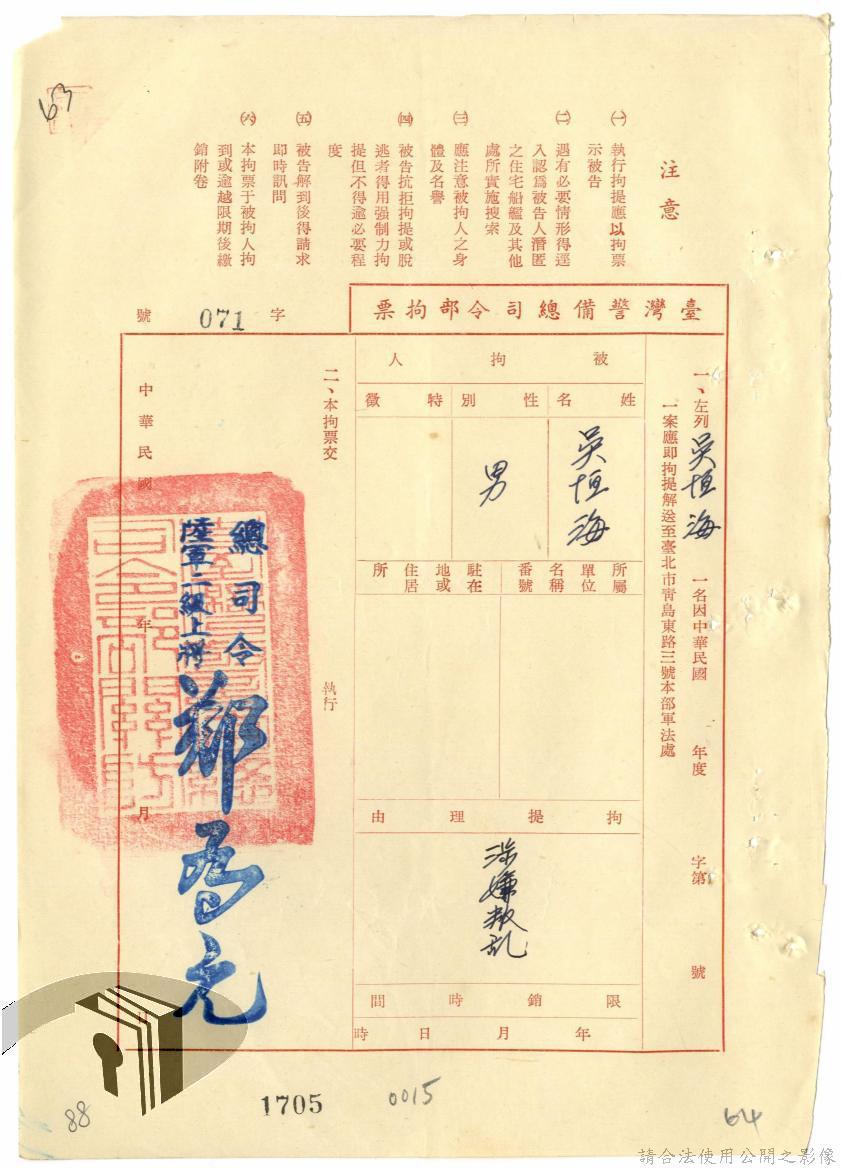 63
注意
㈠ 執行拘提應以拘票
示被告
㈡ 遇有必要情形得逕
入認為被告人潛匿
之住宅船艦及其他
處所實施搜索
㈢ 應注意被拘人之身
體及名譽
㈣ 被告抗拒拘提或脫
逃者得用强制力拘
提但不得逾必要程
度
㈤ 被告解到後得請求
即時訊問
㈥ 本拘票于被拘人拘
到或逾越限期後繳
銷附卷
臺灣警備總司令部拘票
字 071 號
一、左列 吳恒海 一名因中華民國 年度 字第 號
一案應即拘提解送至臺北市青島東路三號本部軍法處
被拘人
姓名 性別 特徵
吳恒海 男
所屬單位名稱番號 駐在地或住居所
拘提理由
涉嫌叛乱
限銷時間
年 月 日 時
二、本拘票交 執行
總司令
陸軍二級上將 鄭為元
中華民國 年 月 日
88
1705
0015
64
請合法使用公開之影像